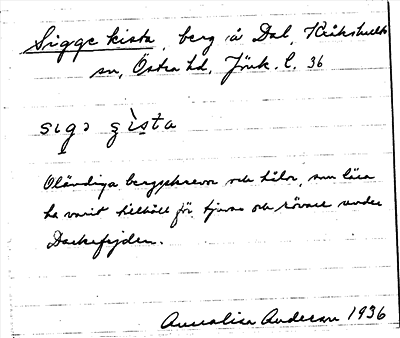 Sigge kista, berg å Dal, Kråkshults
sn, Östra hd, Jönk. l. 36
sɩgə ʂɩ̀sta
Oländiga bergsskrevor och hålor, som lära
ha varit tillhåll för tjuvar och rövare under
Dackefejden.
Annalisa Anderson 1936